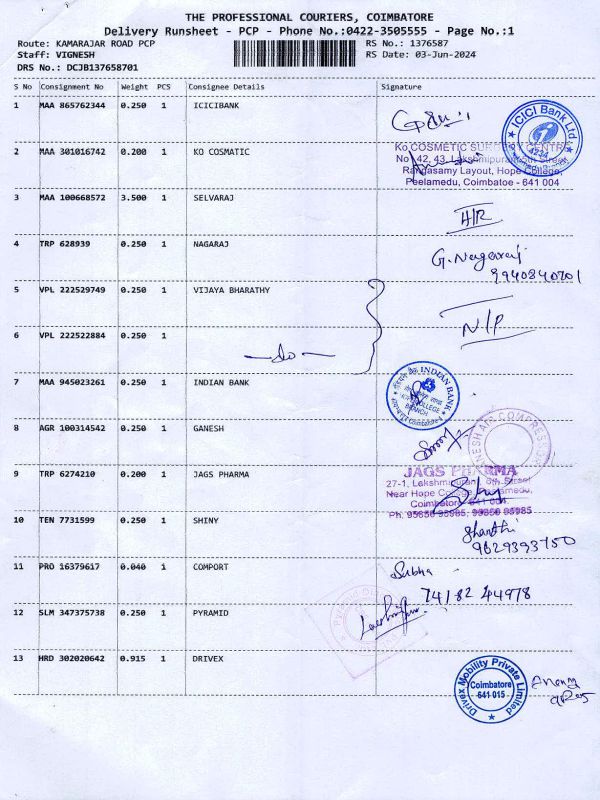 THE PROFESSIONAL COURIERS, COIMBATORE
Delivery Runsheet - PCP - Phone No.:0422-3505555 - Page No.:1
Route: KAMARAJAR ROAD PCP
RS No.: 1376587
Staff: VIGNESH
RS Date: 03-Jun-2024
DRS No.: DCJB137658701
S No Consignment No Weight PCS Consignee Details Signature
1 MAA 865762344 0.250 1 ICICIBANK
ICICI Bank Ltd
2 MAA 301016742 0.200 1 KO COSMATIC
Ko COSMETIC SURGERY CENTRE
No 42, 43, Lakshmipuram Street
Rangasamy Layout, Hope College,
Peelamedu, Coimbatoe - 641 004
3 MAA 100668572 3.500 1 SELVARAJ
4 TRP 628939 0.250 1 NAGARAJ
G. Nagaraj
9940840701
5 VPL 222529749 0.250 1 VIJAYA BHARATHY
N/P
6 VPL 222522884 0.250 1
-do-
7 MAA 945023261 0.250 1 INDIAN BANK
INDIAN BANK
8 AGR 100314542 0.250 1 GANESH
GANESH AIR COMPRESSOR
9 TRP 6274210 0.200 1 JAGS PHARMA
JAGS PHARMA
27-1, Lakshmipuram, 6th Street
Near Hope College, Peelamedu,
Coimbatore - 641 004.
Ph: 95856 95985, 99856 95985
10 TEN 7731599 0.250 1 SHINY
Shanthi
9629393750
11 PRO 16379617 0.040 1 COMPORT
Subha
74182 44978
12 SLM 347375738 0.250 1 PYRAMID
13 HRD 302020642 0.915 1 DRIVEX
Drivex Mobility Private Limited
Coimbatore
641 015